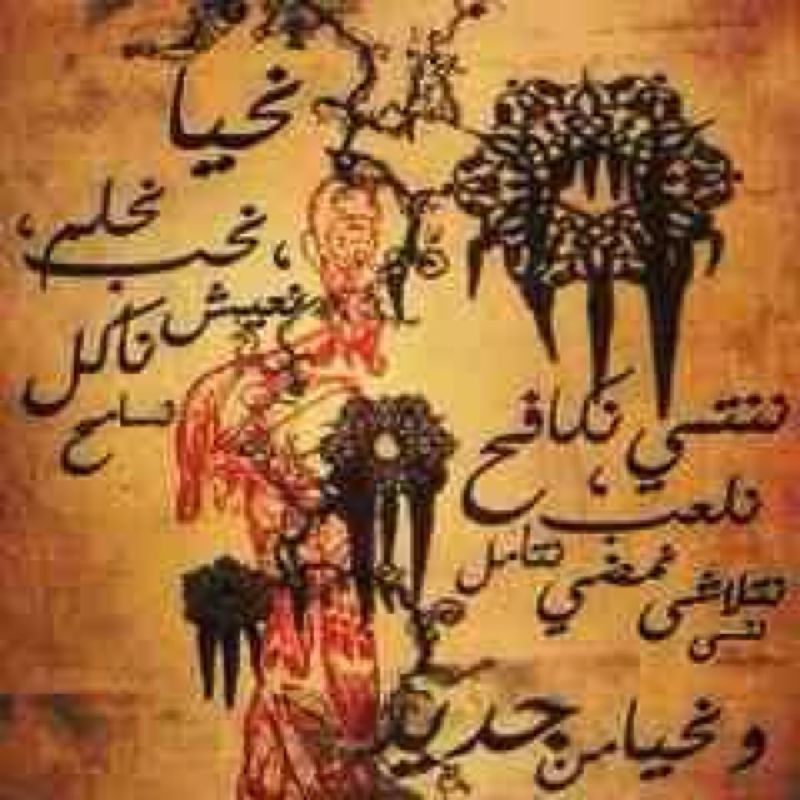 نحيا
، نحب نحلم ،
نعيش ناكل
نسامح
نكافح
نلعب ،
نتلاشى نمضي نتامل
و نحيا من جديد